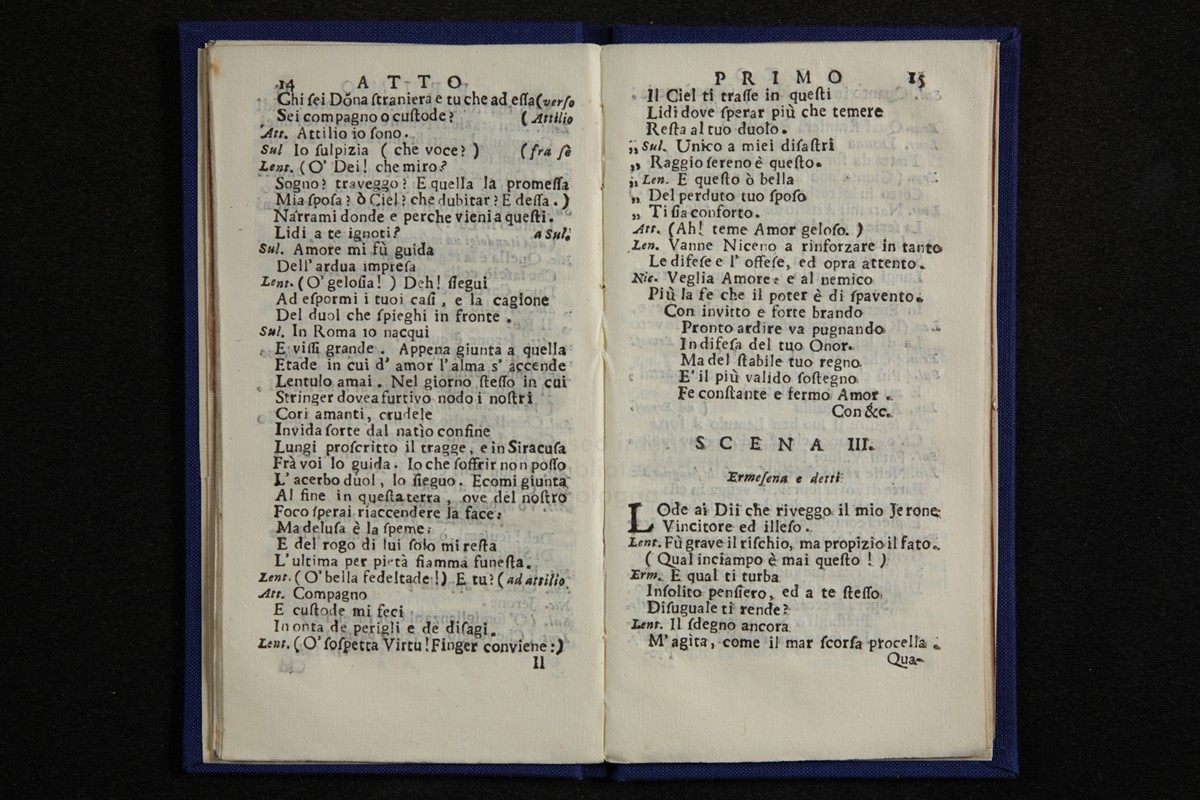 14 ATTO
Chi ſei Dõna ſtraniera e tu che ad eſſa (verſo
Sei compagno o cuſtode? (Attilio
Att. Attilio io ſono.
Sul Io ſulpizia ( che voce? ) (fra ſè
Lent. (O' Dei! che miro?
Sogno? traveggo? E quella la promeſſa
Mia ſpoſa? ò Ciel? che dubitar? E deſſa.)
Narrami donde e perche vieni a queſti.
Lidi a te ignoti? a Sul.
Sul. Amore mi fù guida
Dell' ardua impreſa
Lent. (O' geloſia! ) Deh! ſiegui
Ad eſpormi i tuoi caſi, e la cagione
Del duol che ſpieghi in fronte.
Sul. In Roma io nacqui
E viſſi grande. Appena giunta a quella
Etade in cui d' amor l' alma s' accende
Lentulo amai. Nel giorno ſteſſo in cui
Stringer dovea furtivo nodo i noſtri
Cori amanti, crudele
Invida ſorte dal natìo confine
Lungi proſcritto il tragge, e in Siracuſa
Frà voi lo guida. Io che ſoffrir non poſſo
L' acerbo duol, lo ſieguo. Ecomi giunta
Al fine in queſta terra, ove del noſtro
Foco ſperai riaccendere la face:
Ma deluſa è la ſpeme:
E del rogo di lui ſolo mi reſta
L' ultima per pietà fiamma funeſta.
Lent. (O' bella fedeltade!) E tu? (ad attilio
Att. Compagno
E cuſtode mi feci
In onta de perigli e de diſagi.
Lent. (O' ſoſpetta Virtu! Finger conviene:)
Il
PRIMO 15
Il Ciel ti traſſe in queſti
Lidi dove ſperar più che temere
Reſta al tuo duolo.
„ Sul. Unico a miei diſaſtri
„ Raggio ſereno è queſto.
„ Len. E queſto ò bella
„ Del perduto tuo ſpoſo
„ Ti ſia conforto.
Att. (Ah! teme Amor geloſo. )
Len. Vanne Niceno a rinforzare in tanto
Le difeſe e l' offeſe, ed opra attento.
Nic. Veglia Amore: e al nemico
Più la fe che il poter è di ſpavento.
Con invitto e forte brando
Pronto ardire va pugnando
In difeſa del tuo Onor.
Ma del ſtabile tuo regno
E' il più valido ſoſtegno
Fe conſtante e fermo Amor.
Con &c.
SCENA III.
Ermeſena e detti
LOde ai Dii che riveggo il mio Jerone
Vincitore ed illeſo.
Lent. Fù grave il riſchio, ma propizio il fato.
( Qual inciampo è mai queſto! )
Erm. E qual ti turba
Inſolito penſiero, ed a te ſteſſo
Diſuguale ti rende?
Lent. Il ſdegno ancora
M' agita, come il mar ſcorſa procella.
Qua-